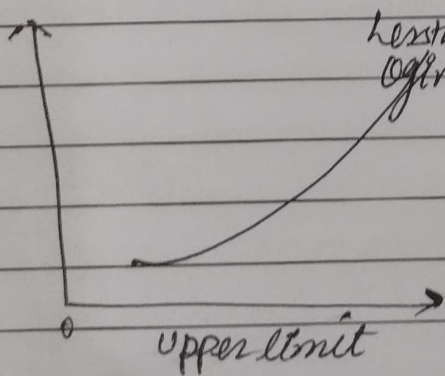 Less
Ogi
0
upper limit